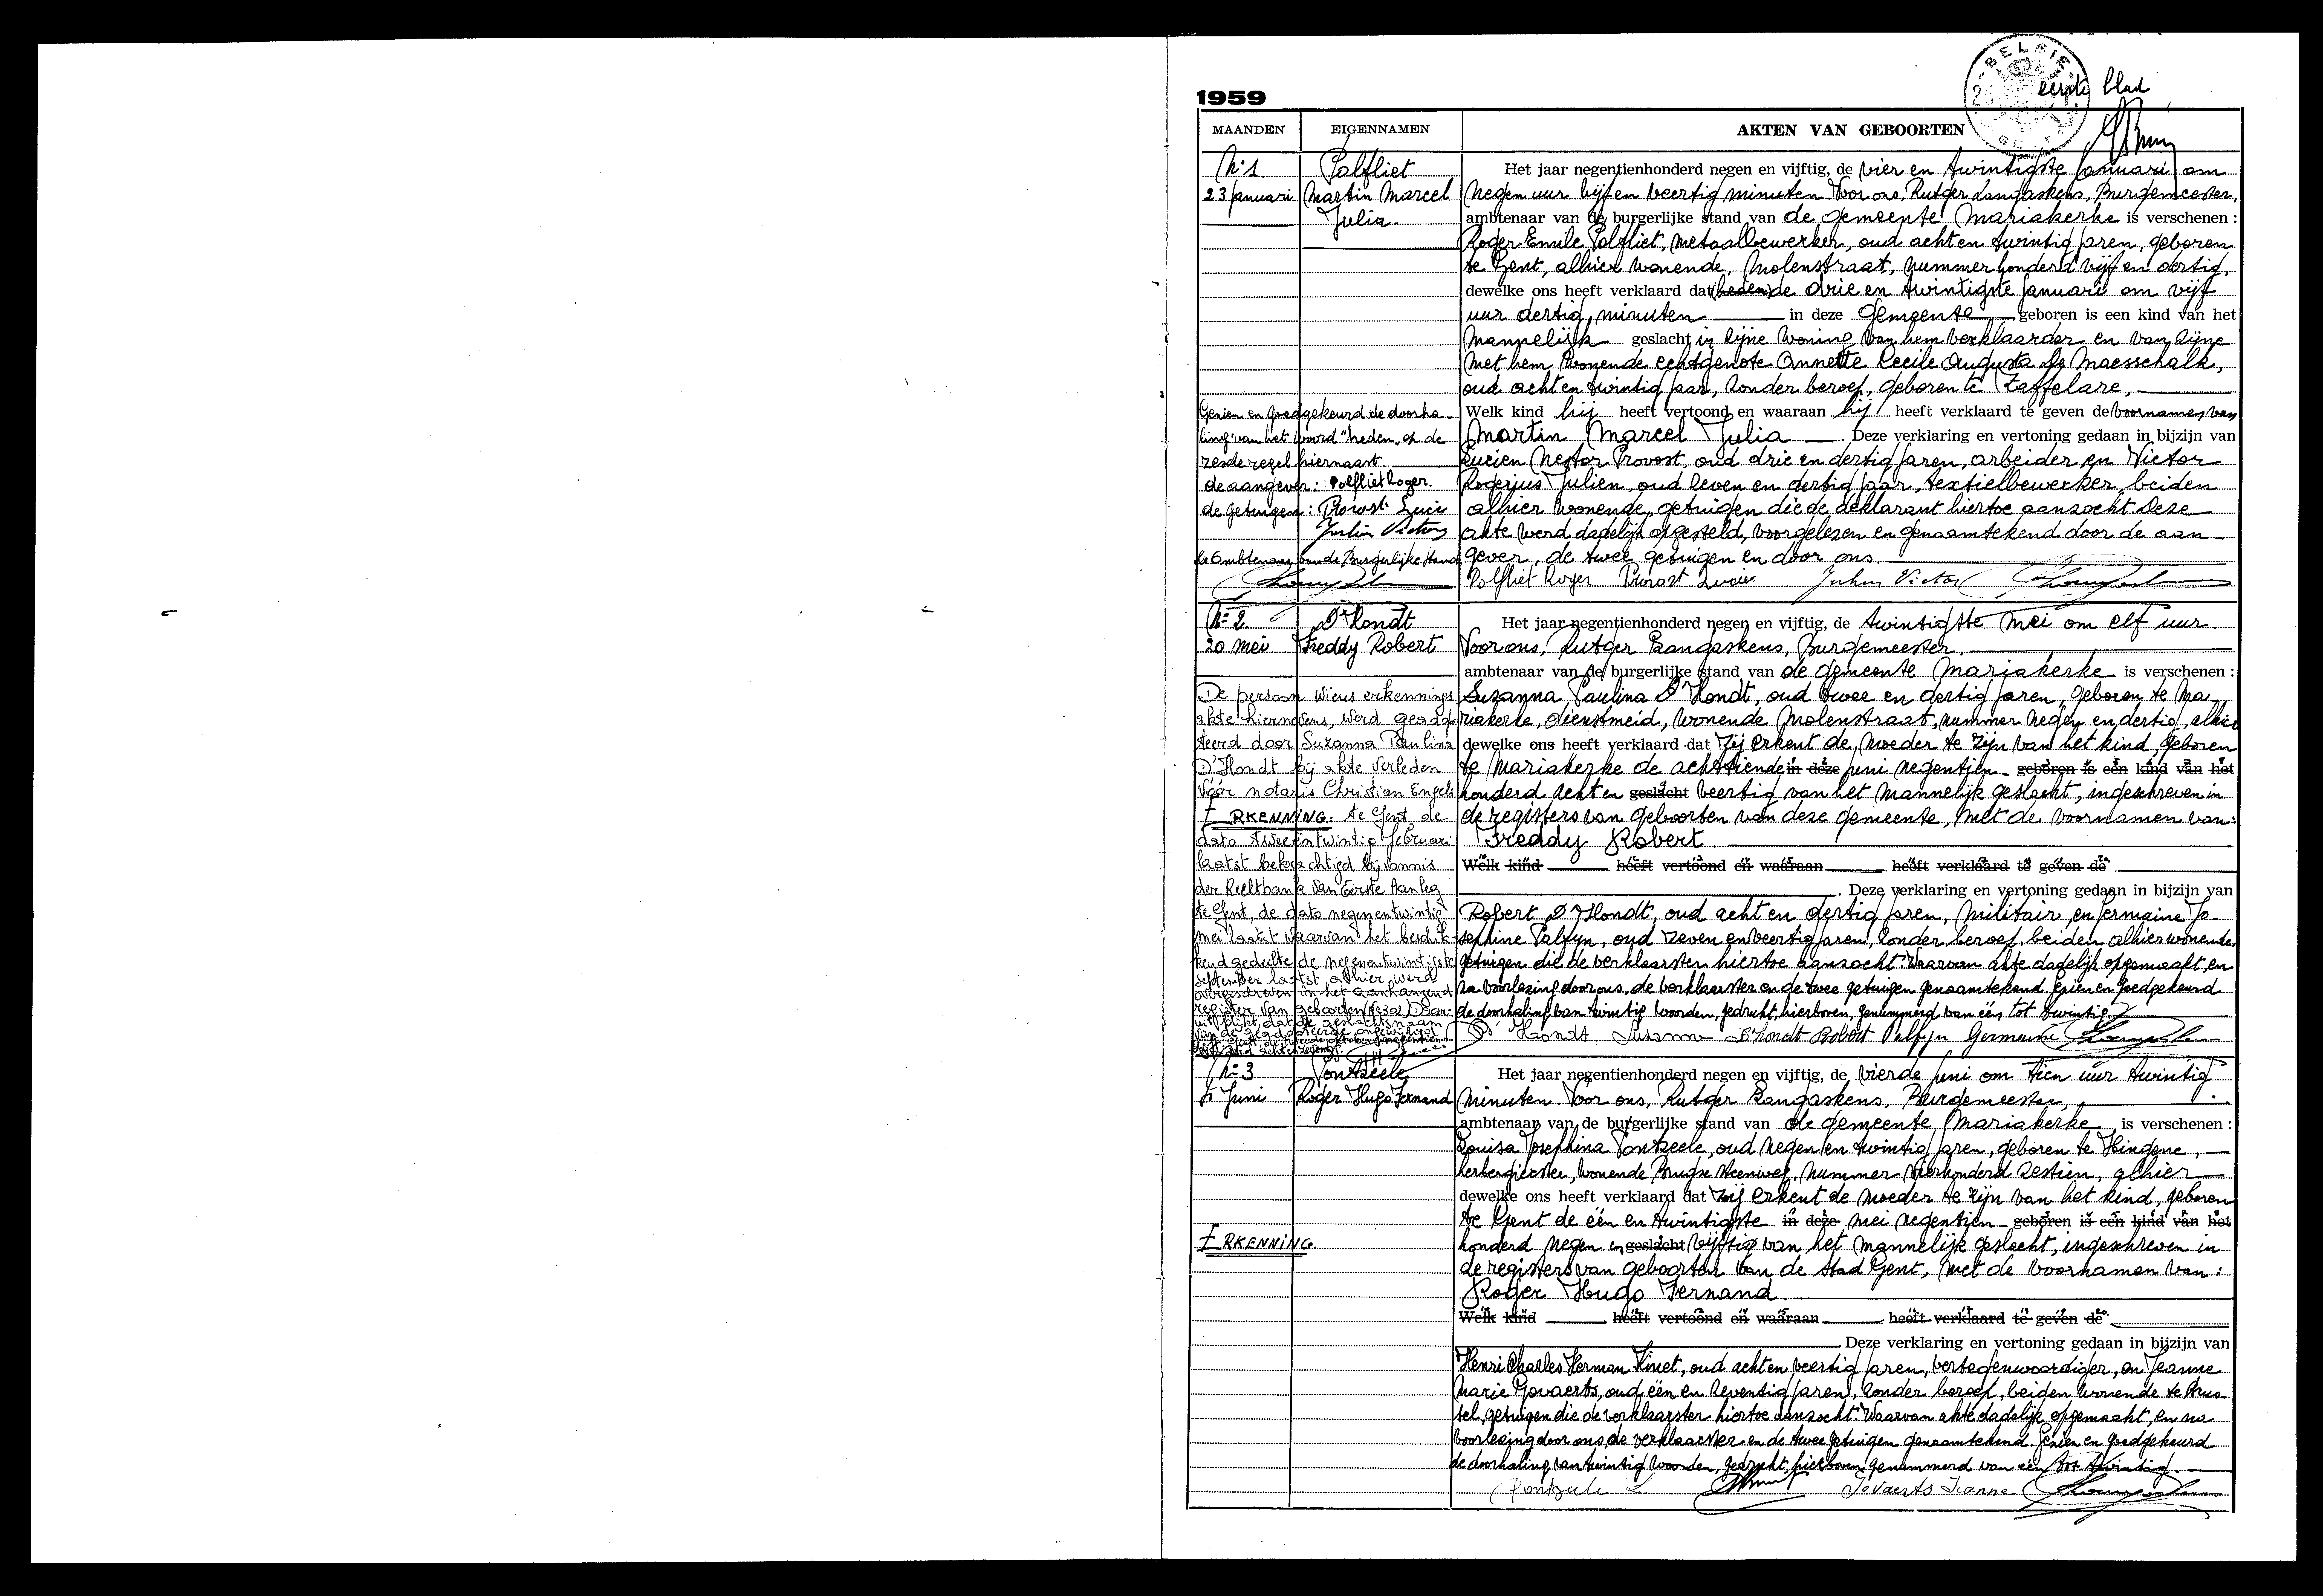 BELGIE
eerste blad
1959
MAANDEN EIGENNAMEN AKTEN VAN GEBOORTEN
N° 1. Palfliet
23 Januari Martin Marcel
Julia
Het jaar negentienhonderd negen en vijftig, de vier en twintigste Januari om
negen uur vijf en veertig minuten Voor ons, Rutger Langaskens, Burgemeester,
ambtenaar van de burgerlijke stand van de gemeente Mariakerke is verschenen :
Roger Emile Palfliet, metaalbewerker, oud acht en twintig jaren, geboren
te Gent, alhier wonende, Molenstraat, nummer honderd vijf en dertig,
dewelke ons heeft verklaard dat (heden) de drie en twintigste Januari om vijf
uur dertig minuten in deze gemeente geboren is een kind van het
mannelijk geslacht in zijne woning van hem verklaarder en van zijne
met hem wonende echtgenote Annette Cecile Augusta De Maesschalk,
oud acht en twintig jaar, zonder beroep, geboren te Zaffelare,
Welk kind hij heeft vertoond en waaraan hij heeft verklaard te geven de voornamen van
Martin Marcel Julia . Deze verklaring en vertoning gedaan in bijzijn van
Lucien Nestor Provost, oud drie en dertig jaren, arbeider en Victor
Rogerius Julien, oud zeven en dertig jaar, textielbewerker, beiden
alhier wonende, getuigen die de deklarant hiertoe aanzocht. Deze
akte werd dadelijk opgesteld, voorgelezen en genaamtekend door de aan-
gever, de twee getuigen en door ons.
Palfliet Roger Provost Lucien Julien Victor
Gezien en goedgekeurd de doorha-
ling van het woord "heden" op de
zesde regel hiernaast.
de aangever: Palfliet Roger.
de getuigen: Provost Lucien
Julien Victor
de Ambtenaar van de Burgerlijke Stand
N° 2. D'Hondt
20 mei Freddy Robert
Het jaar negentienhonderd negen en vijftig, de twintigste mei om elf uur.
Voor ons, Rutger Langaskens, Burgemeester,
ambtenaar van de burgerlijke stand van de gemeente Mariakerke is verschenen :
Suzanna Paulina D'Hondt, oud twee en dertig jaren, geboren te Ma-
riakerke, dienstmeid, wonende Molenstraat, nummer negen en dertig, alhier
dewelke ons heeft verklaard dat zij erkent de moeder te zijn van het kind, geboren
te Mariakerke de achttiende in deze juni negentien- geboren is een kind van het
honderd acht en geslacht veertig van het mannelijk geslacht, ingeschreven in
de registers van geboorten van deze gemeente, met de voornamen van:
Freddy Robert
Welk kind heeft vertoond en waaraan heeft verklaard te geven de
. Deze verklaring en vertoning gedaan in bijzijn van
Robert D'Hondt, oud acht en dertig jaren, militair, en Germaine Jo-
sephine Palfyn, oud zeven en veertig jaren, zonder beroep, beiden alhier wonende,
getuigen die de verklaarster hiertoe aanzocht. Waarvan akte dadelijk opgemaakt, en
na voorlezing door ons, de verklaarster en de twee getuigen genaamtekend. Gezien en goedgekeurd
de doorhaling van twintig woorden, gedrukt, hierboven, genummerd van één tot twintig.
D'Hondt Susanne D'hondt Robert Palfyn Germaine
De persoon wiens erkennings
akte hiernevens, werd geadop
teerd door Suzanna Paulina
D'Hondt bij akte verleden
vóór notaris Christian Engels
ERKENNING. te Gent, de
dato tweeëntwintig februari
laatst bekrachtigd bij vonnis
der Rechtbank van Eerste Aanleg
te Gent, de dato negenentwintig
mei laatst waarvan het beschik-
kend gedeelte de negenentwintigste
september laatst alhier werd
overgeschreven in het aanhangend
register van geboorten (N° 302) Daar-
uit blijkt, dat de geslachtsnaam
van de geadopteerde ongewijzigd
N° 3 Vontzeele
4 Juni Roger Hugo Fernand
Het jaar negentienhonderd negen en vijftig, de vierde juni om tien uur twintig
minuten. Voor ons, Rutger Langaskens, Burgemeester,
ambtenaar van de burgerlijke stand van de gemeente Mariakerke, is verschenen :
Louisa Josephina Pontzeele, oud negen en twintig jaren, geboren te Hingene,
herbergierster, wonende Brugse steenweg, nummer vierhonderd zestien, alhier
dewelke ons heeft verklaard dat zij erkent de moeder te zijn van het kind, geboren
te Gent de één en twintigste in deze mei negentien- geboren is een kind van het
honderd negen en geslacht vijftig van het mannelijk geslacht, ingeschreven in
de registers van geboorten van de stad Gent, met de voornamen van:
Roger Hugo Fernand
ERKENNING.
Welk kind heeft vertoond en waaraan heeft verklaard te geven de
Deze verklaring en vertoning gedaan in bijzijn van
Henri Charles Herman Kinet, oud acht en veertig jaren, vertegenwoordiger, en Jeanne
Marie Govaerts, oud één en zeventig jaren, zonder beroep, beiden wonende te Brus-
sel, getuigen die de verklaarster hiertoe aanzocht. Waarvan akte dadelijk opgemaakt, en na
voorlezing door ons, de verklaarster en de twee getuigen genaamtekend. Gezien en goedgekeurd
de doorhaling van twintig woorden, gedrukt, hierboven, genummerd van één tot twintig.
Pontzeele L Govaerts Jeanne